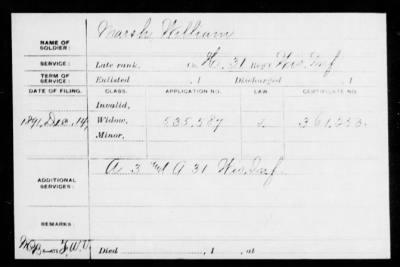 NAME OF SOLDIER: Marsh William
SERVICE: Late rank, Co. H, 31 Reg't Wis. Inf
TERM OF SERVICE: Enlisted , 1 Discharged , 1
DATE OF FILING. CLASS. APPLICATION NO. LAW. CERTIFICATE NO.
Invalid,
1891, Dec. 14, Widow, 535,587 361,253
Minor,
ADDITIONAL SERVICES: A 3 and A 31 Wis. Inf.
REMARKS:
Died , 1 , at